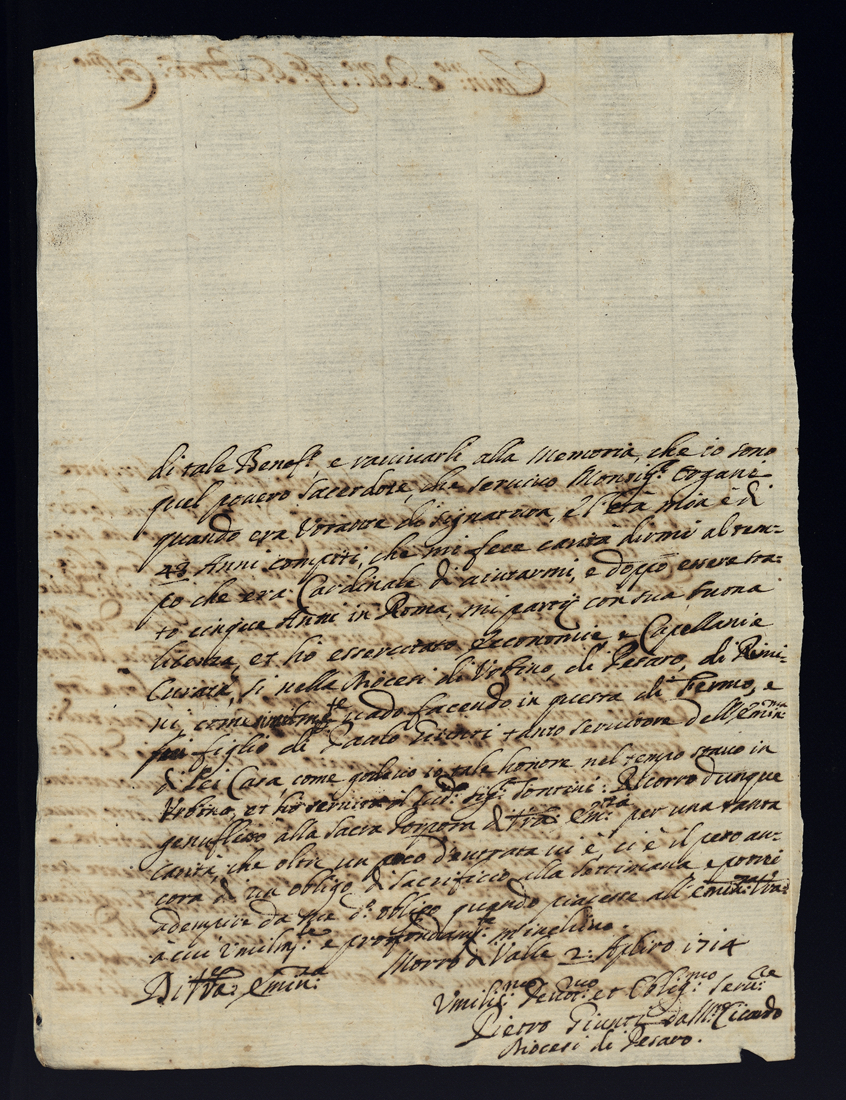 di tale Benef.º, e ravvivarli alla Memoria, che io sono
quel povero Sacerdote, che servivo Monsig.r
quando era Votante di Signatura, e l'età mia è di
43 Anni compiti, che mi fece carità dirmi al tem-
po che era Cardinale di aiutarmi, e doppo essere sta-
to cinque Anni in Roma, mi partij con sua buona
licenza, et ho essercitato Economie, e Capellanie
Curata, si nella Diocesi di Urbino, di Pesaro, di Rimi-
ni, come facendo in questa di Fermo, e
fui figlio di tanto servitore dell'Emin.ma
di Lei Casa, come godevo io tale honore nel tempo stavo in
Urbino, et ho servito il Sig.r Ricorro dunque
genuflesso alla Sacra Porpora di V'ra Em.za per una tanta
Carità, che oltre un poco d'entrata vi è vi è il peso an-
cora di un obligo di Sacrificio alla Settimana e potrei
adempire da me d.º obligo quando piacesse all'Emin.za V'ra
à cui Umilm.te e profondam.te m'inchino.
Di V'ra Emin.za Morro di Valle 2: Aprile 1714
Umilis.mo Devot.mo et Oblig.mo Serv.re
Pietro Giunti da M.te Cicardo
Diocesi di Pesaro.